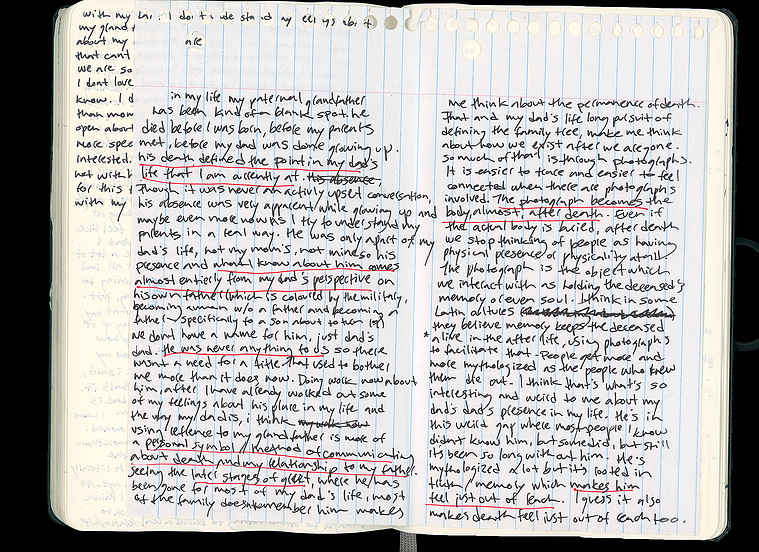 with my
my grand
about my
that cant
we are so
I dont love
know. I d
than mom
open about
more spec
interested.
not with h
for this t
with my
are
in my life my paternal grandfather
has been kind of a blank spot. he
died before I was born, before my parents
met, before my dad was done growing up.
his death defined the point in my dad's
life that I am currently at. this absence,
Though it was never an activly upset conversation,
his absence was very apparent while growing up and
maybe even more now as I try to understand my
parents in a real way. He was only a part of my
dad's life, not my mom's, not mine so his
presence and what I know about him comes
almost entirely from my dad's perspective on
his own father (which is coloured by the military,
becoming a man w/o a father and becoming a
father - specifically to a son about to turn 18)
we don't have a name for him, just dad's
dad. He was never anything to us so there
wasnt a need for a title. That used to bother
me more than it does now. Doing work now about
him, after I have already worked out some
of my feelings about his place in my life and
the way my dad is, i think my work now
using refrence to my grandfather is more of
a personal symbol / method of communicating
about death and my relationship to my father.
seeing the later stages of greif, where he has
been gone for most of my dad's life, most
of the family doesnt remember him makes
me think about the permanence of death.
That and my dad's life long pursuit of
defining the family tree, make me think
about how we exist after we are gone.
so much of that is through photographs.
It is easier to trace and easier to feel
connected when there are photographs
involved. The photograph becomes the
body, almost, after death. Even if
the actual body is buried, after death
we stop thinking of people as having
physical presence or physicality at all.
The photograph is the object which
we interact with as holding the deceased's
memory or even soul. I think in some
Latin cultures
they believe memory keeps the deceased
* alive in the after life, using photographs
to facilitate that. People get more and
more mythologized as the people who knew
them die out. I think that's what's so
interesting and weird to me about my
dad's dad's presence in my life. He's in
this weird gap where most people I know
didn't know him, but some did, but still
its been so long with out him. He's
mythologized a lot but its rooted in
truth / memory which makes him
feel just out of reach. I guess it also
makes death feel just out of reach too.